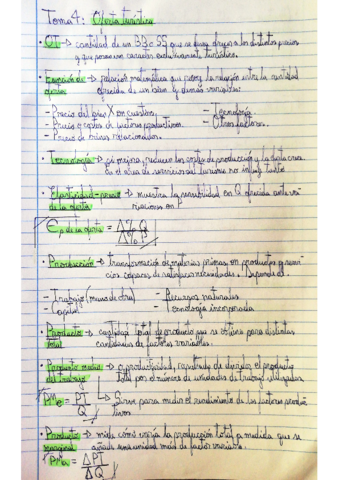 Tema 4: Oferta turística
• OT → cantidad de un BB o SS que se lleva a los distintos precios
y que posee un carácter exclusivamente turístico.
• Función de → relación matemática que pone la relación entre la cantidad
oferta ofrecida de un bien y demás variables
- Precio del bien X en cuestión. - Tecnología
- Precio y costes de factores productivos. - Otros factores.
- Precio de bienes relacionados.
• Tecnología → si mejora, reducen los costes de producción y la oferta crece
en el área de servicios del turismo no influye tanto
• Elasticidad-precio → muestra la sensibilidad en Q ofrecida ante
de la oferta variaciones en P
Ep de la oferta = Δ% Q
Δ% P
• Producción → transformación de materias primas en productos y servicios
capaces de satisfacer necesidades. Depende de:
- Trabajo (mano de obra) - Recursos naturales
- Capital - Tecnología incorporada
• Producto → cantidad total de producto que se obtiene para distintas
total cantidades de factores variables.
• Producto medio → o productividad, resultado de dividir el producto
del trabajo total por el número de unidades de trabajo utilizadas.
PMe = PT → Sirve para medir el rendimiento de los factores productivos
Q
• Producto → mide cómo varía la producción total a medida que se
marginal añade una unidad más de factor variable.
PMa = ΔPT
ΔQ